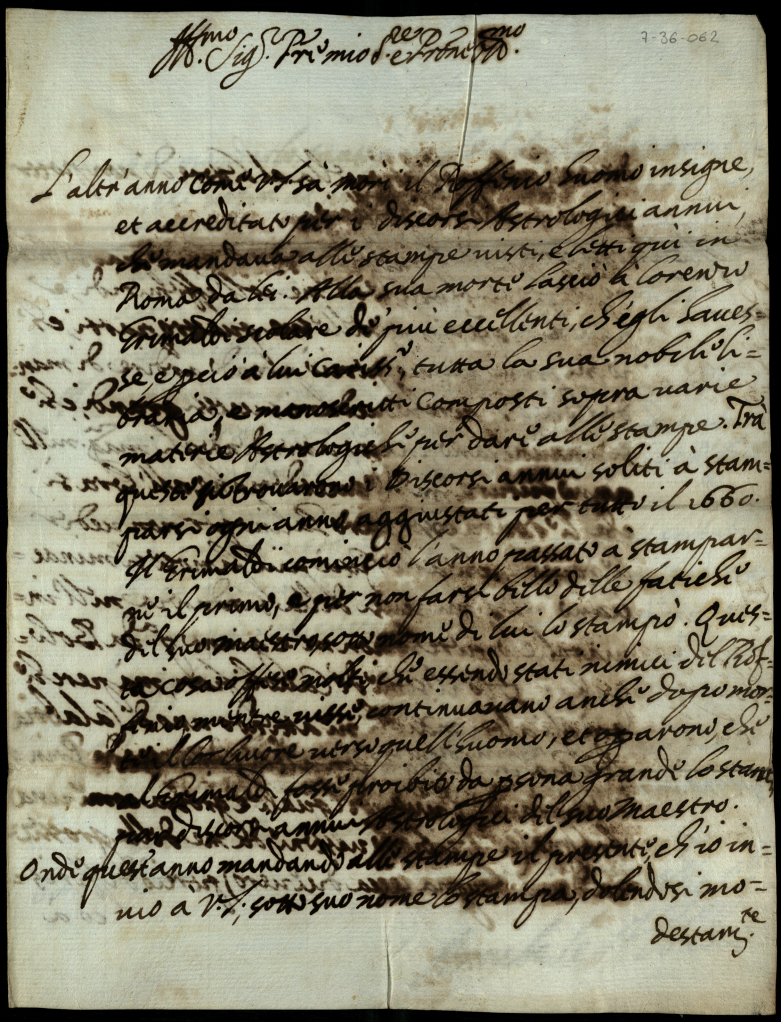 7-36-062
Ill.mo Sig.r Pr̃e mio S.re e Pron̄e Ill.mo
L'altr'anno come V.S. sà morì il Roffenio huomo insigne,
et accreditato per i discorsi Astrologici annui,
che mandava alle stampe visti, e letti quì in
Roma da lei. Alla sua morte lasciò à Lorenzo
Grimaldi scolare de' più eccellenti, ch'egli haves=
se, e perciò à lui cariss.o, tutta la sua nobile li=
braria, e manoscritti composti sopra varie
materie Astrologiche per dare alle stampe. Trà
questi si trovarono i Discorsi annui soliti à stam=
parsi ogni anno aggiustati per tutto il 1660.
Il Grimaldi cominciò l'anno passato à stampar=
ne il primo, e per non farsi bello delle fatiche
del suo maestro, sotto nome di lui lo stampò. Ques=
ta cosa offese molti, che essendo stati nimici del Rof=
fenio, mentre visse, continuavano anche dopo mor=
te il livore verso quell'huomo, et operarono, che
al Grimaldi fosse proibito da psona grande lo stam=
pare discorsi annui Astrologici del suo Maestro.
Onde quest'anno mandando alle stampe il presente, ch'io in=
vio à V.S., sotto suo nome lo stampa, dolendosi mo=
destam.te